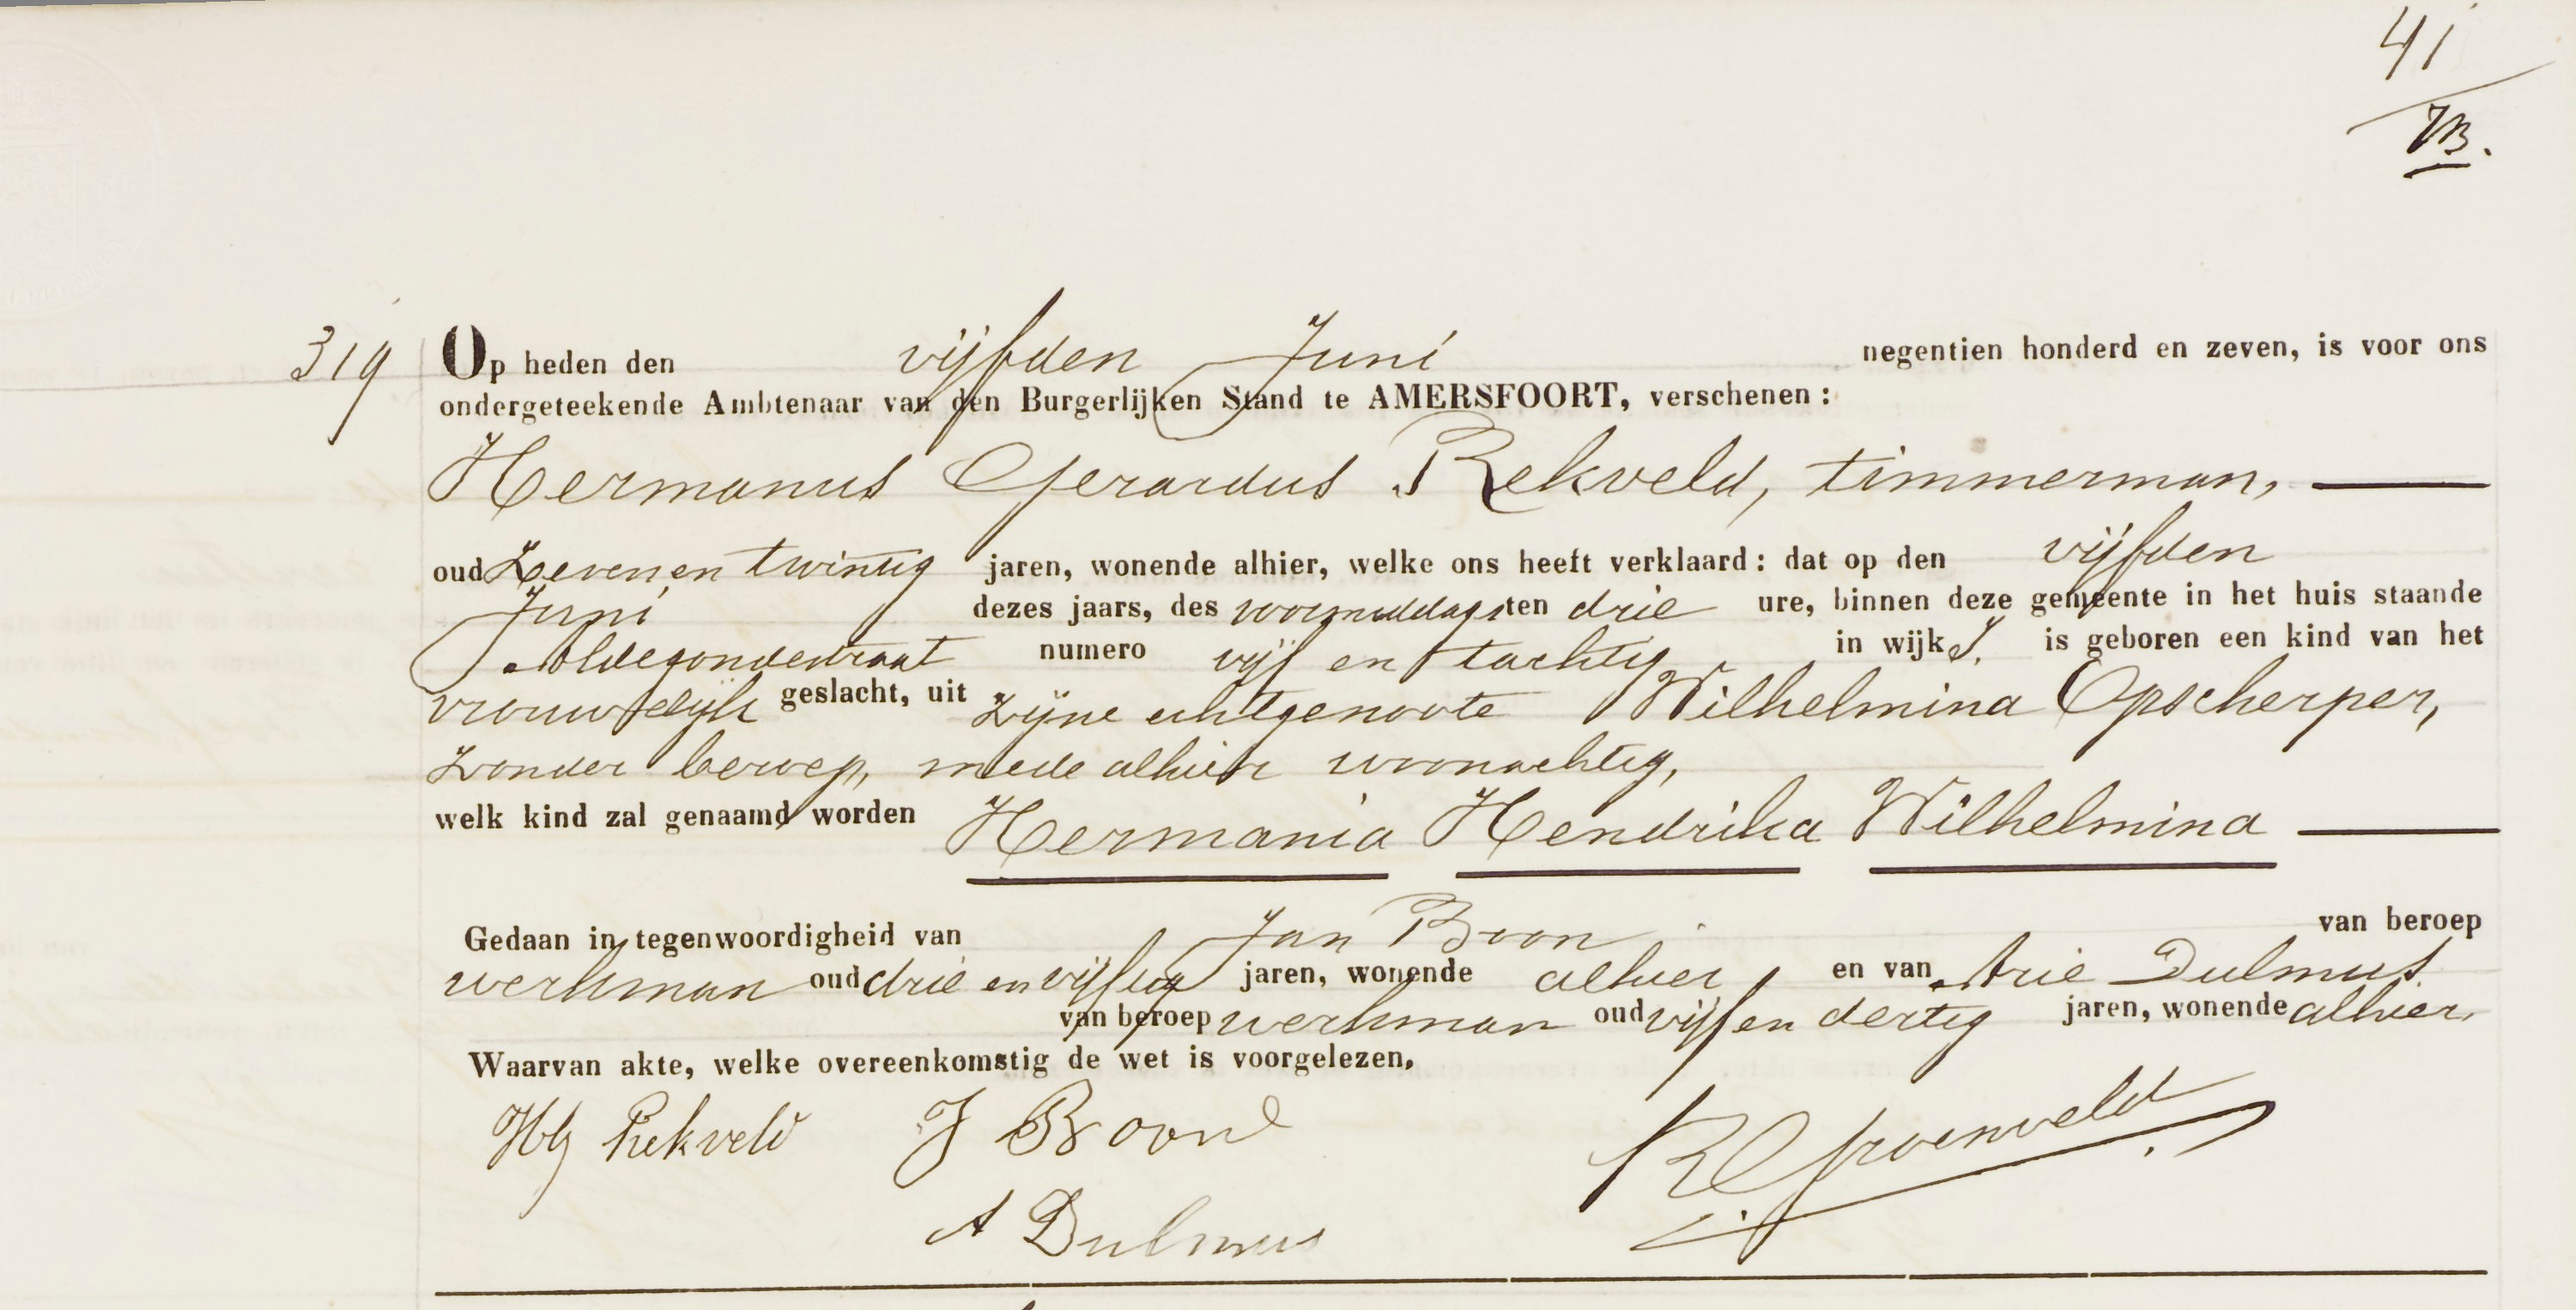 41
319
Op heden den vijfden Juni negentien honderd en zeven, is voor ons
ondergeteekende Ambtenaar van den Burgerlijken Stand te AMERSFOORT, verschenen:
Hermanus Gerardus Rekveld, timmerman,
oud zeven en twintig jaren, wonende alhier, welke ons heeft verklaard: dat op den vijfden
Juni dezes jaars, des voormiddags ten drie ure, binnen deze gemeente in het huis staande
Aldegondestraat numero vijf en tachtig in wijk J. is geboren een kind van het
vrouwelijk geslacht, uit zijne echtgenoote Wilhelmina Opscherper,
zonder beroep, mede alhier woonachtig,
welk kind zal genaamd worden Hermania Hendrika Wilhelmina
Gedaan in tegenwoordigheid van Jan Boon van beroep
werkman oud drie en vijftig jaren, wonende alhier, en van Arie Dulmus
van beroep werkman oud vijf en dertig jaren, wonende alhier.
Waarvan akte, welke overeenkomstig de wet is voorgelezen.
HG Rekveld J Boon RGroenveld
A Dulmus